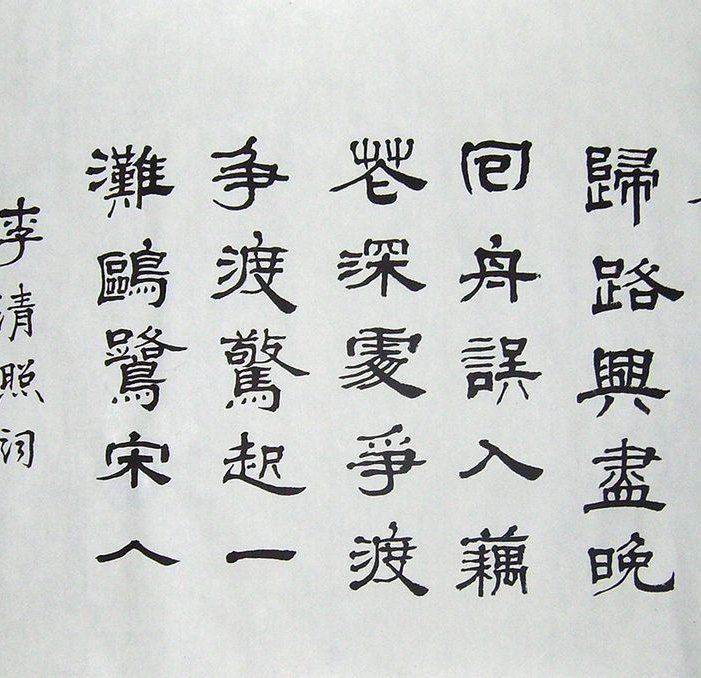 歸路興盡晚
回舟誤入藕
花深處爭渡
争渡驚起一
灘鷗鷺宋人
李清照词